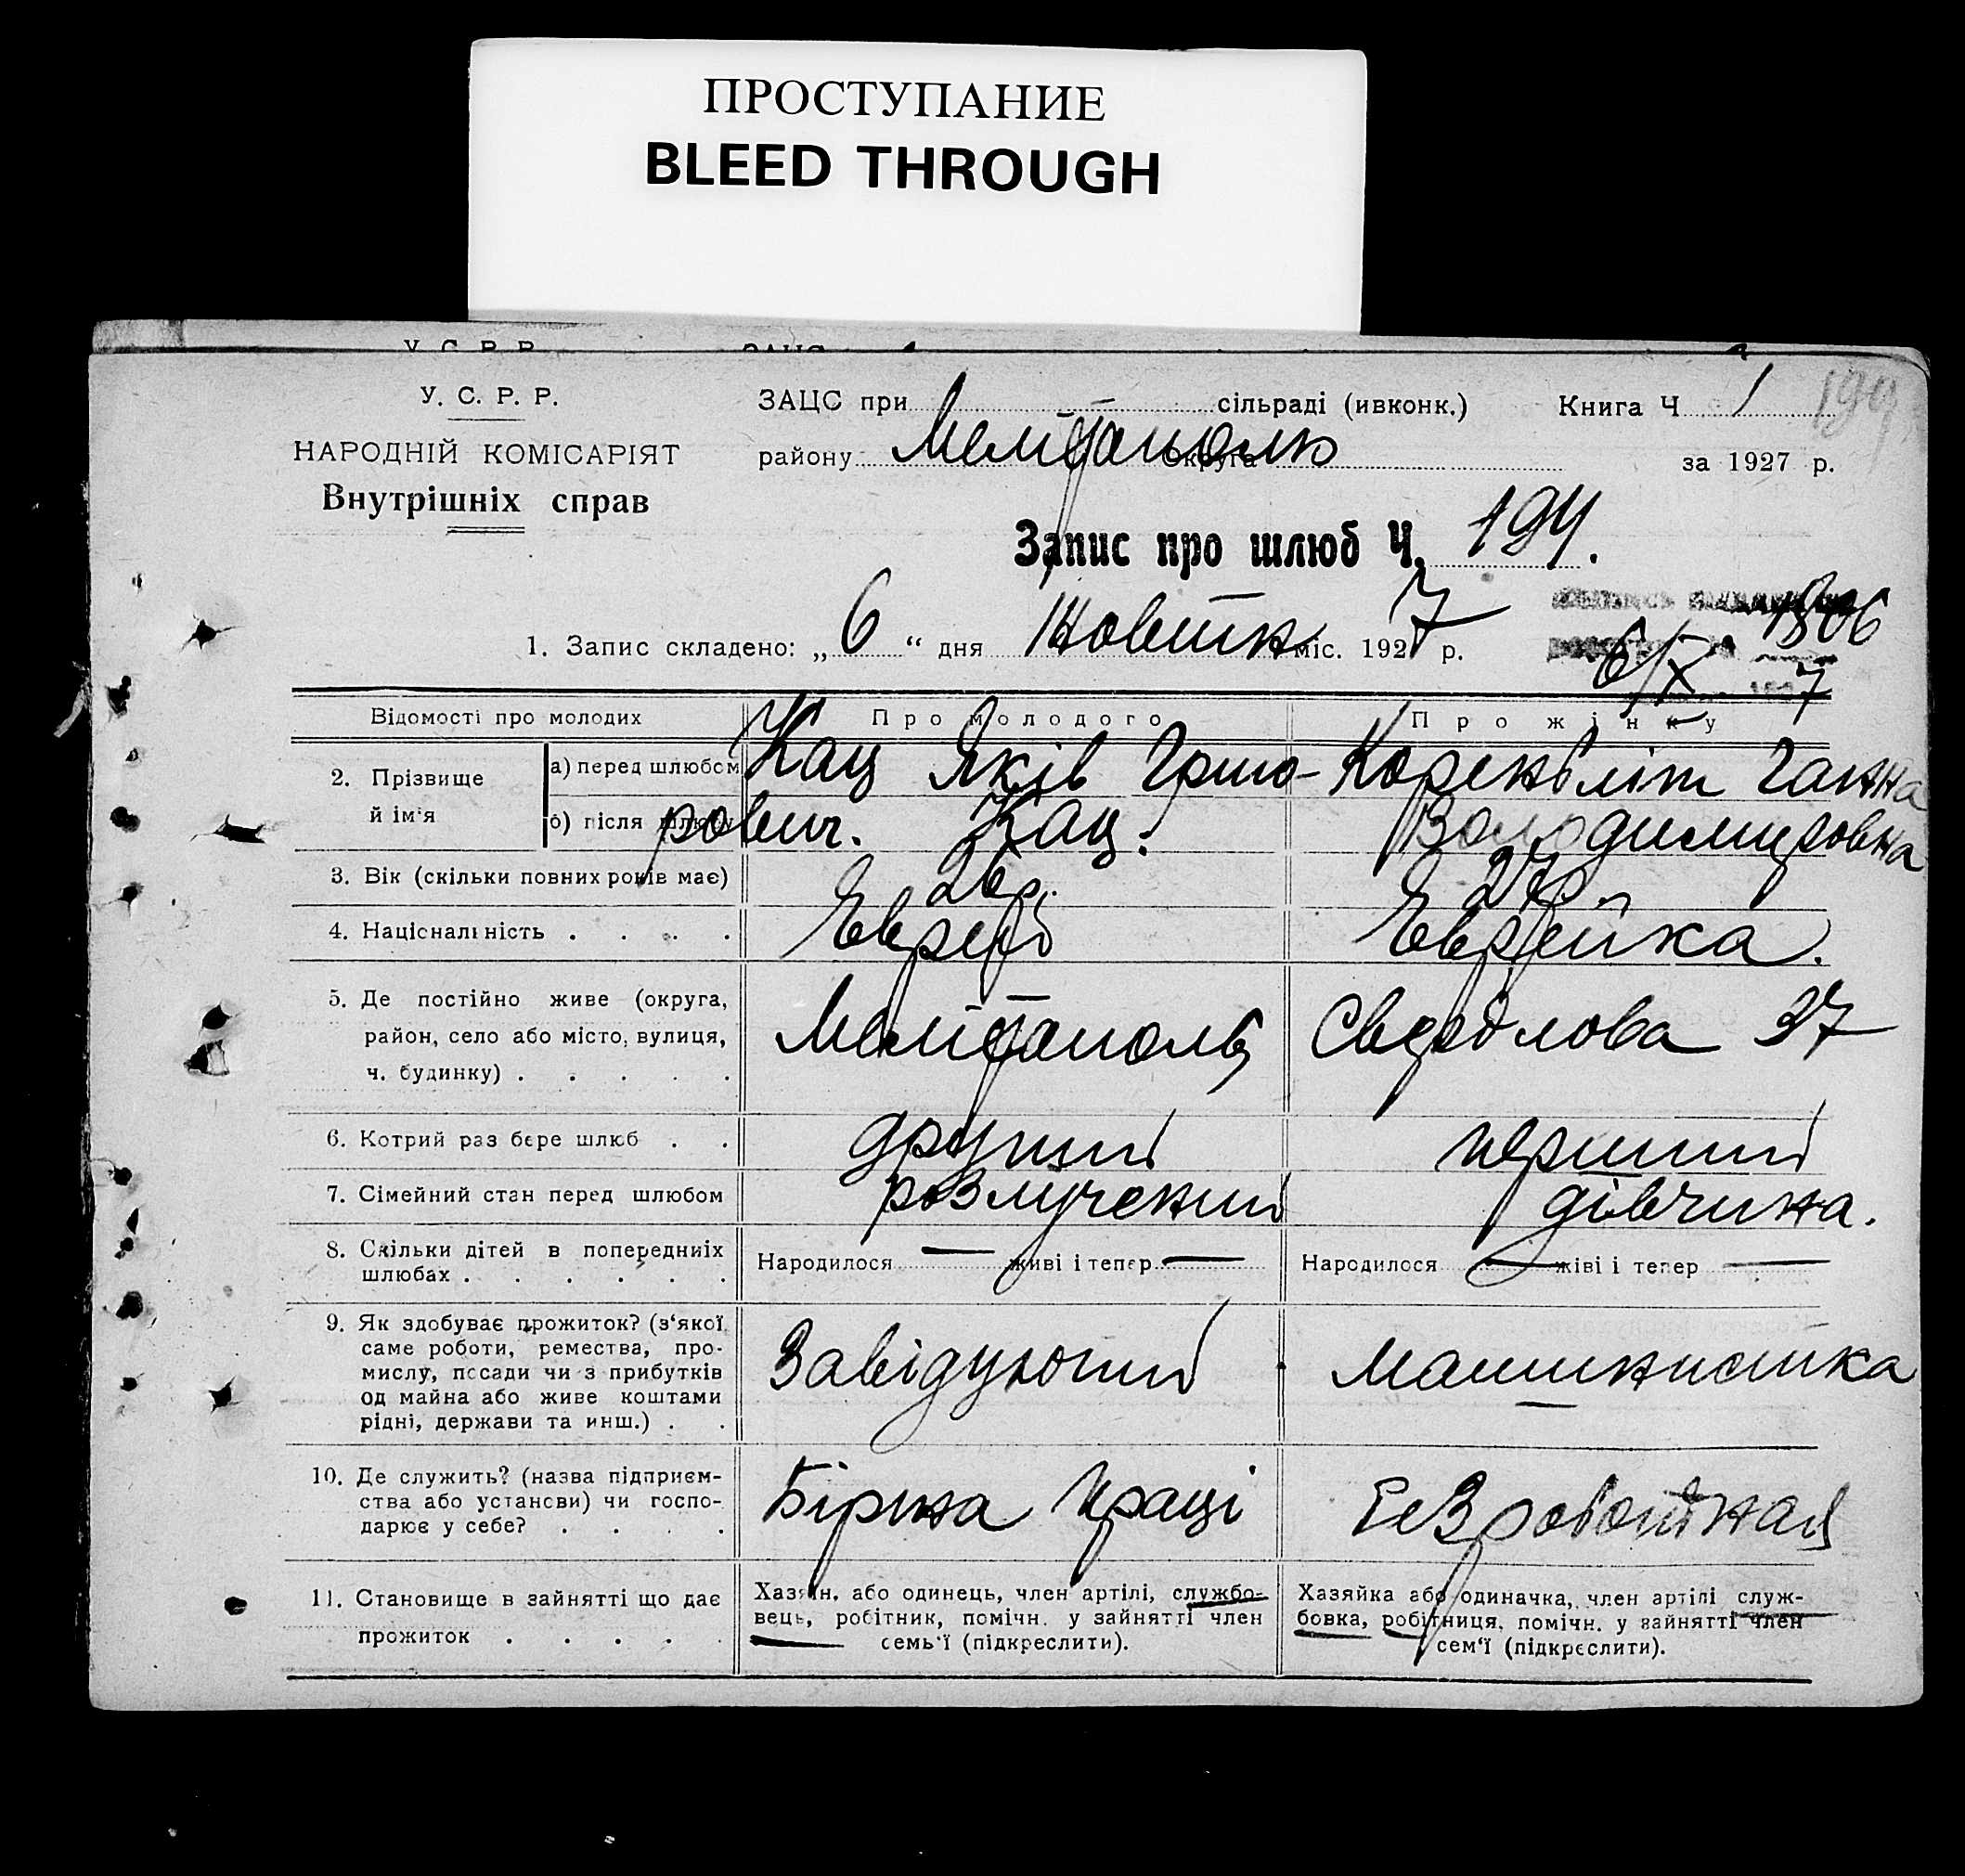 ПРОСТУПАНИЕ
BLEED THROUGH
У. С. Р. Р.
НАРОДНІЙ КОМІСАРІЯТ
Внутрішніх справ
ЗАЦС при сільраді (ивконк.) Книга Ч 1
району Мелітополь Округа за 1927 р.
Запис про шлюб Ч. 194.
1. Запис складено: „ 6 “ дня Жовтня міс. 1927 р.
1306
6/X 7
Відомості про молодих Про молодого Про жінку
2. Прізвище й ім'я
а) перед шлюбом Кац Яків Гришо- Коренбліт Ганна
б) після шлюбу рович. Кац. Володимировна
3. Вік (скільки повних років має) 26 р. 27 р.
4. Національність . . . . Еврей Еврейка.
5. Де постійно живе (округа,
район, село або місто, вулиця,
ч. будинку) . . . . .
Мелітополь Свердлова 37
6. Котрий раз бере шлюб . . другий перший
7. Сімейний стан перед шлюбом розлучений дівчина.
8. Скільки дітей в попередніх
шлюбах . . . . . .
Народилося — живі і тепер — Народилося — живі і тепер —
9. Як здобуває прожиток? (з'якої
саме роботи, ремества, про-
мислу, посади чи з прибутків
од майна або живе коштами
рідні, держави та инш.) . .
Завідуючий машинистка
10. Де служить? (назва підприєм-
ства або установи) чи госпо-
дарює у себе? . . . .
Біржа праці Безработная
11. Становище в зайнятті що дає
прожиток . . . . .
Хазяїн, або одинець, член артілі, службо-
вець, робітник, помічн. у зайнятті член
семь'ї (підкреслити).
Хазяйка або одиначка, член артілі служ-
бовка, робітниця, помічн. у зайнятті член
сем'ї (підкреслити).